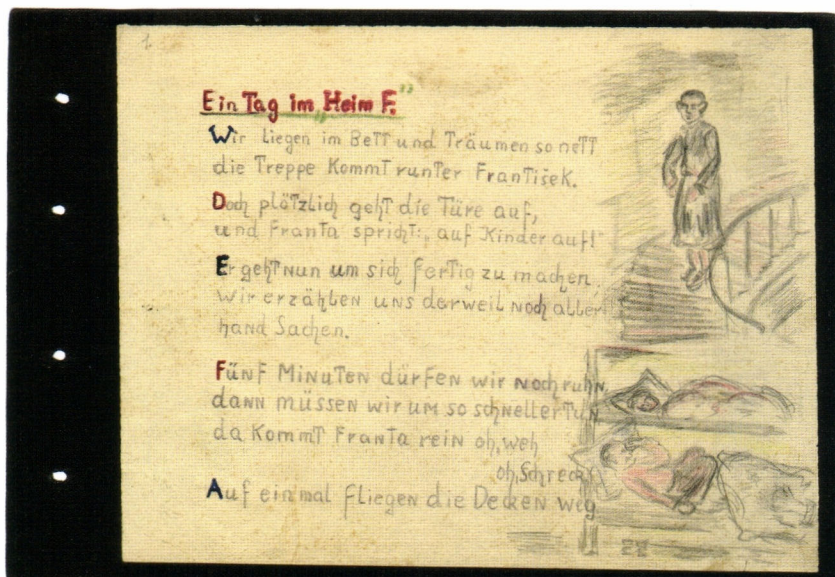 1
Ein Tag im „Heim F."
Wir liegen im Bett und Träumen so nett
die Treppe Kommt runter František.
Doch plötzlich geht die Türe auf,
und Franta spricht: „auf Kinder auf!"
Er geht nun um sich fertig zu machen.
wir erzählen uns derweil noch aller
hand Sachen.
Fünf Minuten dürfen wir noch ruhn,
dann müssen wir um so schneller tun
da Kommt Franta rein oh, weh
oh, Schreck
Auf einmal fliegen die Decken weg